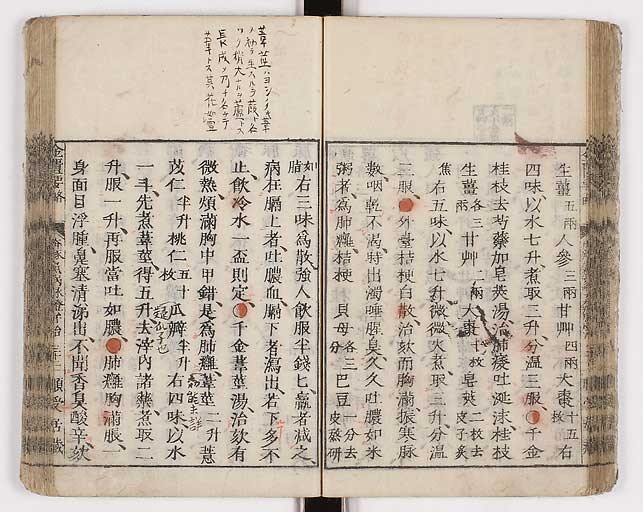 生薑五兩人參三兩甘艸四兩大棗十五枚右
四味以水七升煮取三升分溫三服千金
桂枝去芍藥加皂莢湯治肺痿吐涎沫桂枝
生薑各三兩甘艸二兩大棗十枚皂莢二枚去皮子炙
焦右五味以水七升微微火煮取三升分溫
三服外臺桔梗白散治欬而胸滿振寒脉
數咽乾不渴時出濁唾腥臭久久吐膿如米
粥者為肺癰桔梗貝母各三分巴豆一分去皮熬研
如脂右三味為散強人飲服半錢匕羸者減之
病在膈上者吐膿血膈下者瀉出若下多不
止飲冷水一盃則定千金葦莖湯治欬有
微熱煩滿胸中甲錯是為肺癰葦莖二升薏
苡仁半升桃仁五十枚瓜瓣半升右四味以水
一斗先煮葦莖得五升去滓內諸藥煮取二
升服一升再服當吐如膿肺癰胸滿脹一
身面目浮腫鼻塞清涕出不聞香臭酸辛欬
葦莖ハヨシノ莖
長成ノ乃ナ名ケテ
葦トス其花